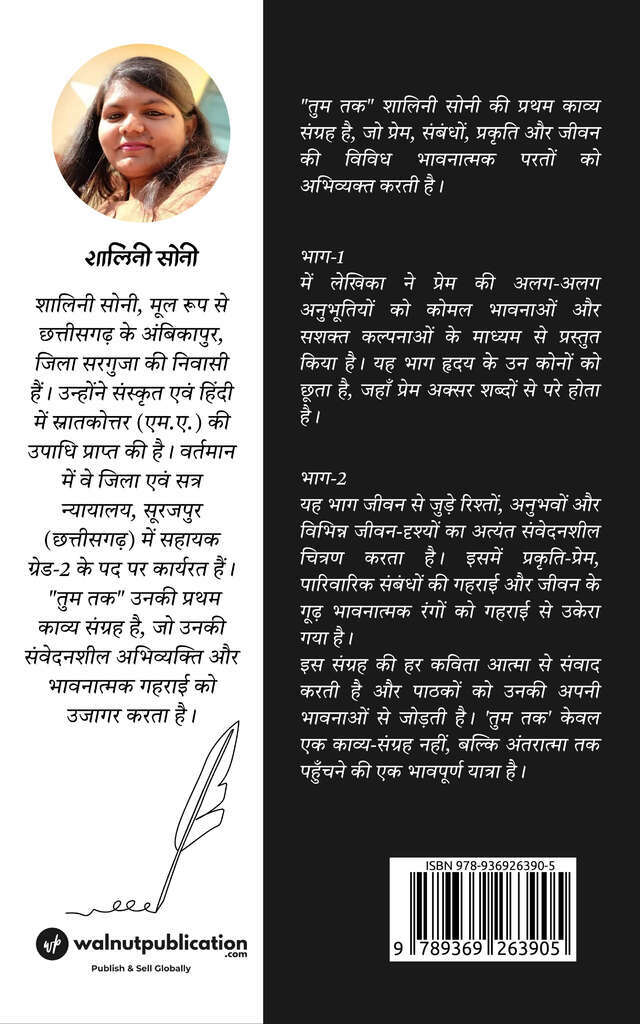 शालिनी सोनी
शालिनी सोनी, मूल रूप से
छत्तीसगढ़ के अंबिकापुर,
जिला सरगुजा की निवासी
हैं। उन्होंने संस्कृत एवं हिंदी
में स्नातकोत्तर (एम.ए.) की
उपाधि प्राप्त की है। वर्तमान
में वे जिला एवं सत्र
न्यायालय, सूरजपुर
(छत्तीसगढ़) में सहायक
ग्रेड-2 के पद पर कार्यरत हैं।
"तुम तक" उनकी प्रथम
काव्य संग्रह है, जो उनकी
संवेदनशील अभिव्यक्ति और
भावनात्मक गहराई को
उजागर करता है।
wp walnutpublication
.com
Publish & Sell Globally
"तुम तक" शालिनी सोनी की प्रथम काव्य
संग्रह है, जो प्रेम, संबंधों, प्रकृति और जीवन
की विविध भावनात्मक परतों को
अभिव्यक्त करती है।
भाग-1
में लेखिका ने प्रेम की अलग-अलग
अनुभूतियों को कोमल भावनाओं और
सशक्त कल्पनाओं के माध्यम से प्रस्तुत
किया है। यह भाग हृदय के उन कोनों को
छूता है, जहाँ प्रेम अक्सर शब्दों से परे होता
है।
भाग-2
यह भाग जीवन से जुड़े रिश्तों, अनुभवों और
विभिन्न जीवन-दृश्यों का अत्यंत संवेदनशील
चित्रण करता है। इसमें प्रकृति-प्रेम,
पारिवारिक संबंधों की गहराई और जीवन के
गूढ़ भावनात्मक रंगों को गहराई से उकेरा
गया है।
इस संग्रह की हर कविता आत्मा से संवाद
करती है और पाठकों को उनकी अपनी
भावनाओं से जोड़ती है। 'तुम तक' केवल
एक काव्य-संग्रह नहीं, बल्कि अंतरात्मा तक
पहुँचने की एक भावपूर्ण यात्रा है।
ISBN 978-936926390-5
9 789369 263905